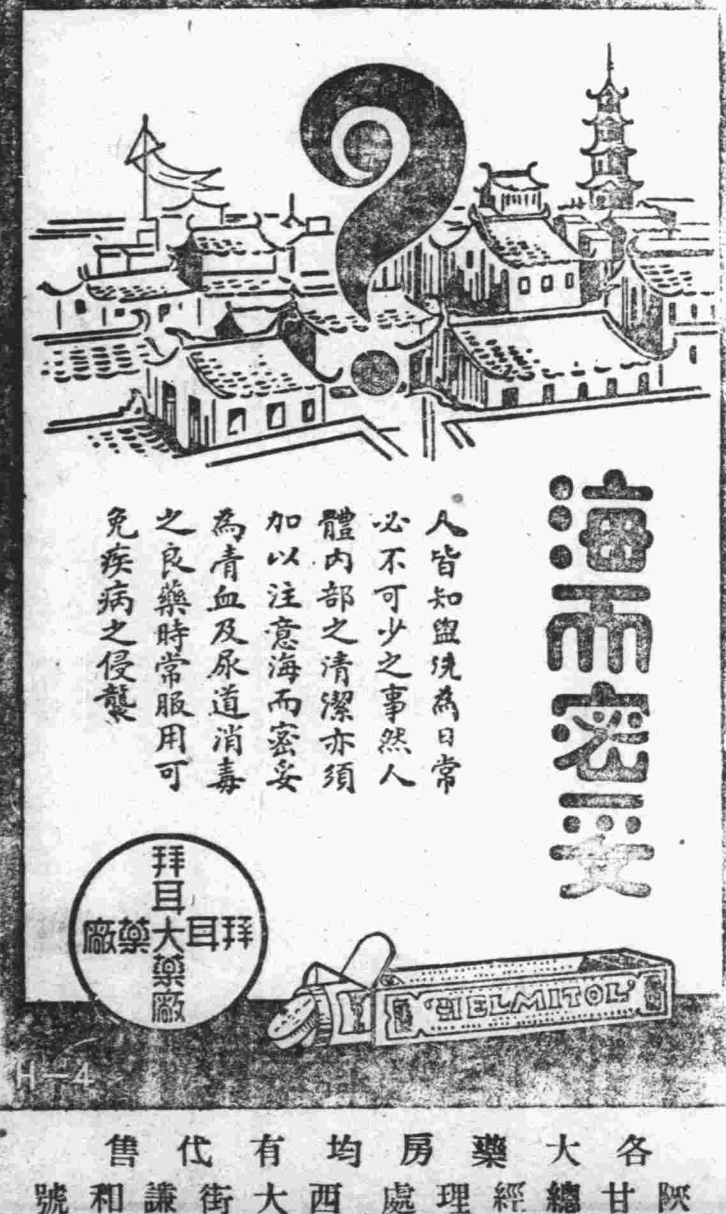 海而密妥
人皆知盥洗為日常
必不可少之事然人
體內部之清潔亦須
加以注意海而密妥
為青血及尿道消毒
之良藥時常服用可
免疾病之侵襲
拜耳大藥廠
拜耳大藥廠
HELMITOL
H-4
各大藥房均有代售
陝甘總經理處西大街謙和號